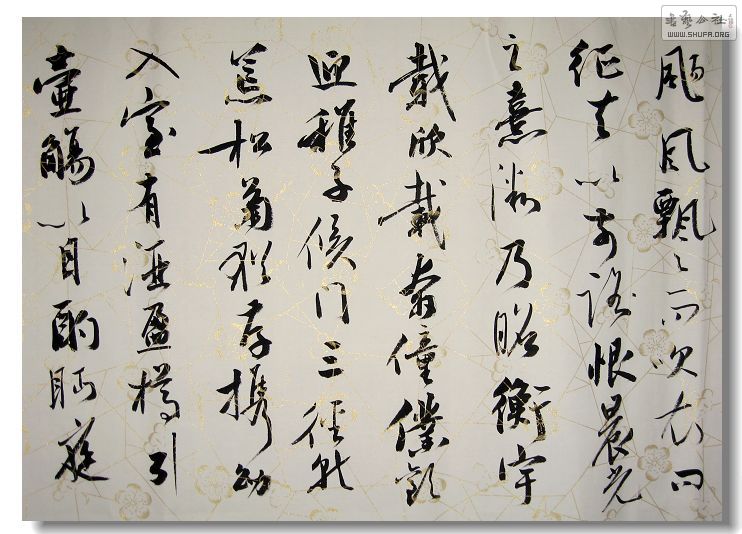 颺風飄〻而吹衣問
征夫以前路恨晨光
之熹微乃瞻衡宇
載欣載奔僮僕歡
迎稚子候門三徑就
荒松菊猶存攜幼
入室有酒盈樽引
壺觴以自酌眄庭
书艺公社
WWW.SHUFA.ORG